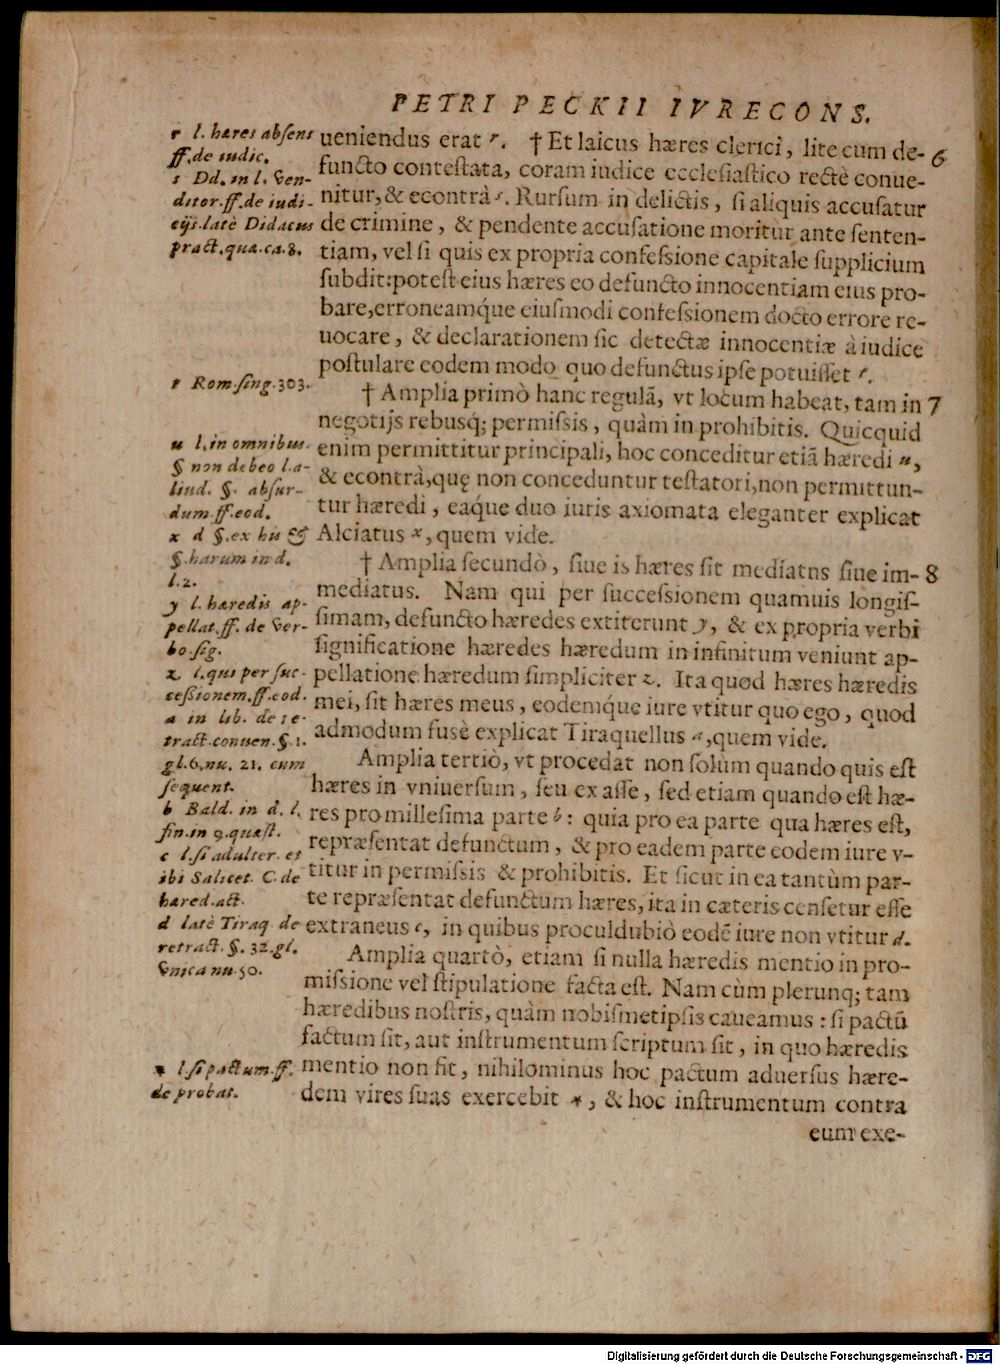 PETRI PECKII IVRECONS.
r l. hæres absens
ff. de iudic.
s Dd. in l. Ven-
ditor. ff. de iudi-
cijs. latè Didacus
pract. qua. ca. 8.
t Rom. sing. 303.
u l. in omnibus.
§ non debeo l. a-
liud. §. absur-
dum. ff. eod.
x d §. ex his &
§. harum in d.
l. 2.
y l. hæredis ap-
pellat. ff. de Ver-
bo. sig.
z l. qui per suc-
cessionem. ff. eod.
a in lib. de re-
tract. conuen. §. 1.
gl. 6. nu. 21. cum
sequent.
b Bald. in d. l.
fin. in 9. quæst.
c l. si adulter. et
ibi Salicet. C. de
hared. act.
d latè Tiraq. de
retract. §. 32. gl.
Vnica nu. 50.
* l. si pactum. ff.
de probat.
ueniendus erat r. † Et laicus hæres clerici, lite cum de- 6
functo contestata, coram iudice ecclesiastico rectè conue-
nitur, & econtrà s. Rursum in delictis, si aliquis accusatur
de crimine, & pendente accusatione moritur ante senten-
tiam, vel si quis ex propria confessione capitale supplicium
subdit: potest eius hæres eo defuncto innocentiam eius pro-
bare, erroneamq́ue eiusmodi confessionem docto errore re-
uocare, & declarationem sic detectæ innocentiæ à iudice
postulare eodem modo quo defunctus ipse potuisset t.
† Amplia primò hanc regulā, vt locum habeat, tam in 7
negotijs rebusq; permissis, quàm in prohibitis. Quicquid
enim permittitur principali, hoc conceditur etiā hæredi u,
& econtrà, quę non conceduntur testatori, non permittun-
tur hæredi, eaq́ue duo iuris axiomata eleganter explicat
Alciatus x, quem vide.
† Amplia secundò, siue is hæres sit mediatus siue im- 8
mediatus. Nam qui per successionem quamuis longis-
simam, defuncto hæredes extiterunt y, & ex propria verbi
significatione hæredes hæredum in infinitum veniunt ap-
pellatione hæredum simpliciter z. Ita quod hæres hæredis
mei, sit hæres meus, eodemq́ue iure vtitur quo ego, quod
admodum fusè explicat Tiraquellus a, quem vide.
Amplia tertiò, vt procedat non solùm quando quis est
hæres in vniuersum, seu ex asse, sed etiam quando est hæ-
res pro millesima parte b: quia pro ea parte qua hæres est,
repræsentat defunctum, & pro eadem parte eodem iure v-
titur in permissis & prohibitis. Et sicut in ea tantùm par-
te repræsentat defunctum hæres, ita in cæteris censetur esse
extraneus c, in quibus proculdubiò eodē iure non vtitur d.
Amplia quartò, etiam si nulla hæredis mentio in pro-
missione vel stipulatione facta est. Nam cùm plerunq; tam
hæredibus nostris, quàm nobismetipsis caueamus: si pactū
factum sit, aut instrumentum scriptum sit, in quo hæredis
mentio non fit, nihilominus hoc pactum aduersus hære-
dem vires suas exercebit *, & hoc instrumentum contra
eum exe-
Digitalisierung gefördert durch die Deutsche Forschungsgemeinschaft - DFG